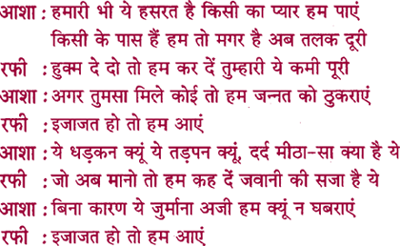 आशा : हमारी भी ये हसरत है किसी का प्यार हम पाएं
किसी के पास हैं हम तो मगर है अब तलक दूरी
रफी : हुक्म दे दो तो हम कर दें तुम्हारी ये कमी पूरी
आशा : अगर तुमसा मिले कोई तो हम जन्नत को ठुकराएं
रफी : इजाजत हो तो हम आएं
आशा : ये धड़कन क्यूं ये तड़पन क्यूं, दर्द मीठा-सा क्या है ये
रफी : जो अब मानो तो हम कह दें जवानी की सजा है ये
आशा : बिना कारण ये जुर्माना अजी हम क्यूं न घबराएं
रफी : इजाजत हो तो हम आएं